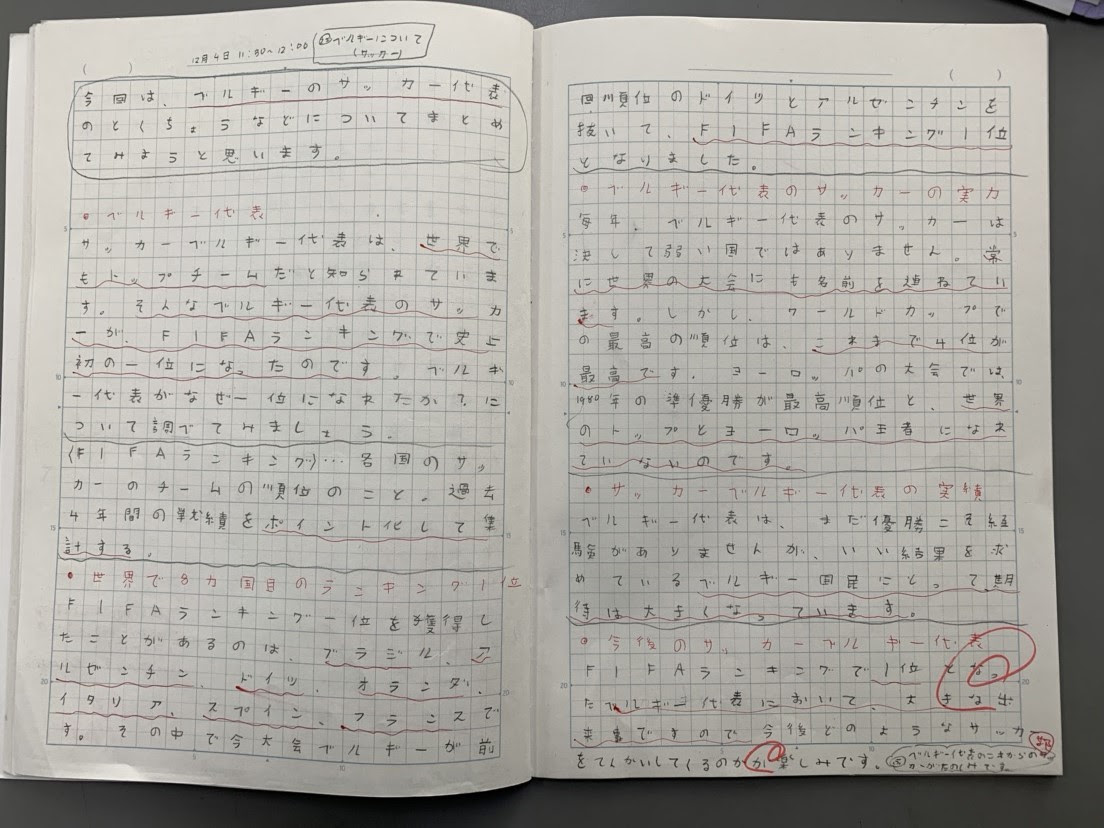 12月4日 11:30~12:00
ベルギーについて
(サッカー)
今回は、ベルギーのサッカー代表
のとくちょうなどについてまとめ
てみようと思います。
・ベルギー代表
サッカーベルギー代表は、世界で
もトップチームだと知られていま
す。そんなベルギー代表のサッカ
ーが、FIFAランキングで史上
初の一位になったのです。ベルギ
ー代表がなぜ一位になれたか?に
ついて調べてみましょう。
(FIFAランキング)…各国のサッ
カーのチームの順位のこと。過去
4年間の戦績をポイント化して集
計する。
・世界で8カ国目のランキング1位
FIFAランキング一位を獲得し
たことがあるのは、ブラジル、ア
ルゼンチン、ドイツ、オランダ、
イタリア、スペイン、フランスで
す。その中で今大会ベルギーが前
回順位のドイツとアルゼンチンを
抜いて、FIFAランキング1位
となりました。
・ベルギー代表のサッカーの実力
毎年、ベルギー代表のサッカーは
決して弱い国ではありません。常
に世界の大会にも名前を連ねてい
ます。しかし、ワールドカップで
の最高の順位は、これまで4位が
最高です。ヨーロッパの大会では、
1980年の準優勝が最高順位と、世界
のトップとヨーロッパ王者になれ
ていないのです。
・サッカーベルギー代表の実績
ベルギー代表は、まだ優勝こそ経
験がありませんが、いい結果を求
めているベルギー国民にとって期
待は大きくなっています。
・今後のサッカーベルギー代表
FIFAランキングで1位となっ
たベルギー代表において、大きな出
来事ですので今後どのようなサッカー
をてんかいしてくるのかが楽しみです。
ベルギー代表のこれからの
がたのしみです。